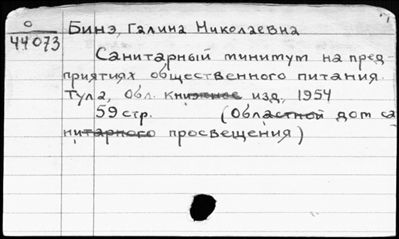 0
44073
Бинэ, Галина Николаевна
Санитарный минимум на пред-
приятиях общественного питания.
Тула, Обл. книжное изд, 1954
59 стр. (Областной дом са
нитарного просвещения)